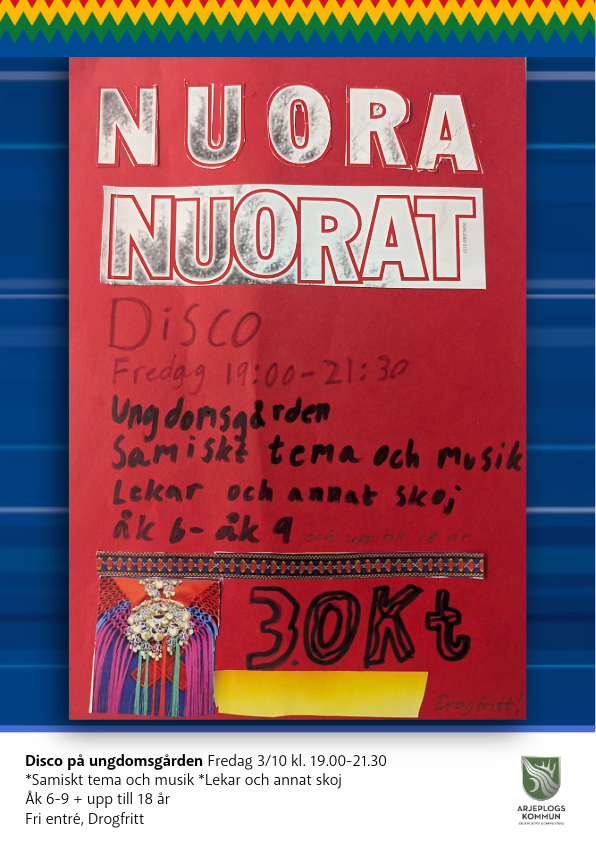 NUORA
NUORAT
Disco
Fredag 19:00-21:30
Ungdomsgården
Samiskt tema och musik
Lekar och annat skoj
åk 6- åk 9 och upp till 18 år
30Kt
Drogfritt!
Disco på ungdomsgården Fredag 3/10 kl. 19.00-21.30
*Samiskt tema och musik *Lekar och annat skoj
Åk 6-9 + upp till 18 år
Fri entré, Drogfritt
ARJEPLOGS
KOMMUN